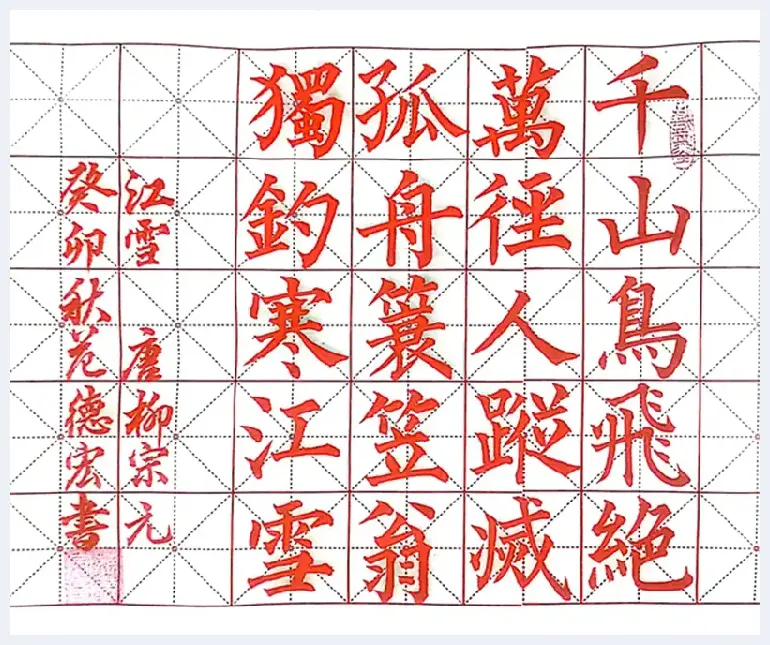 千山鳥飛絶
萬徑人蹤滅
孤舟簑笠翁
獨釣寒江雪
江雪 唐柳宗元
癸卯秋范德宏書